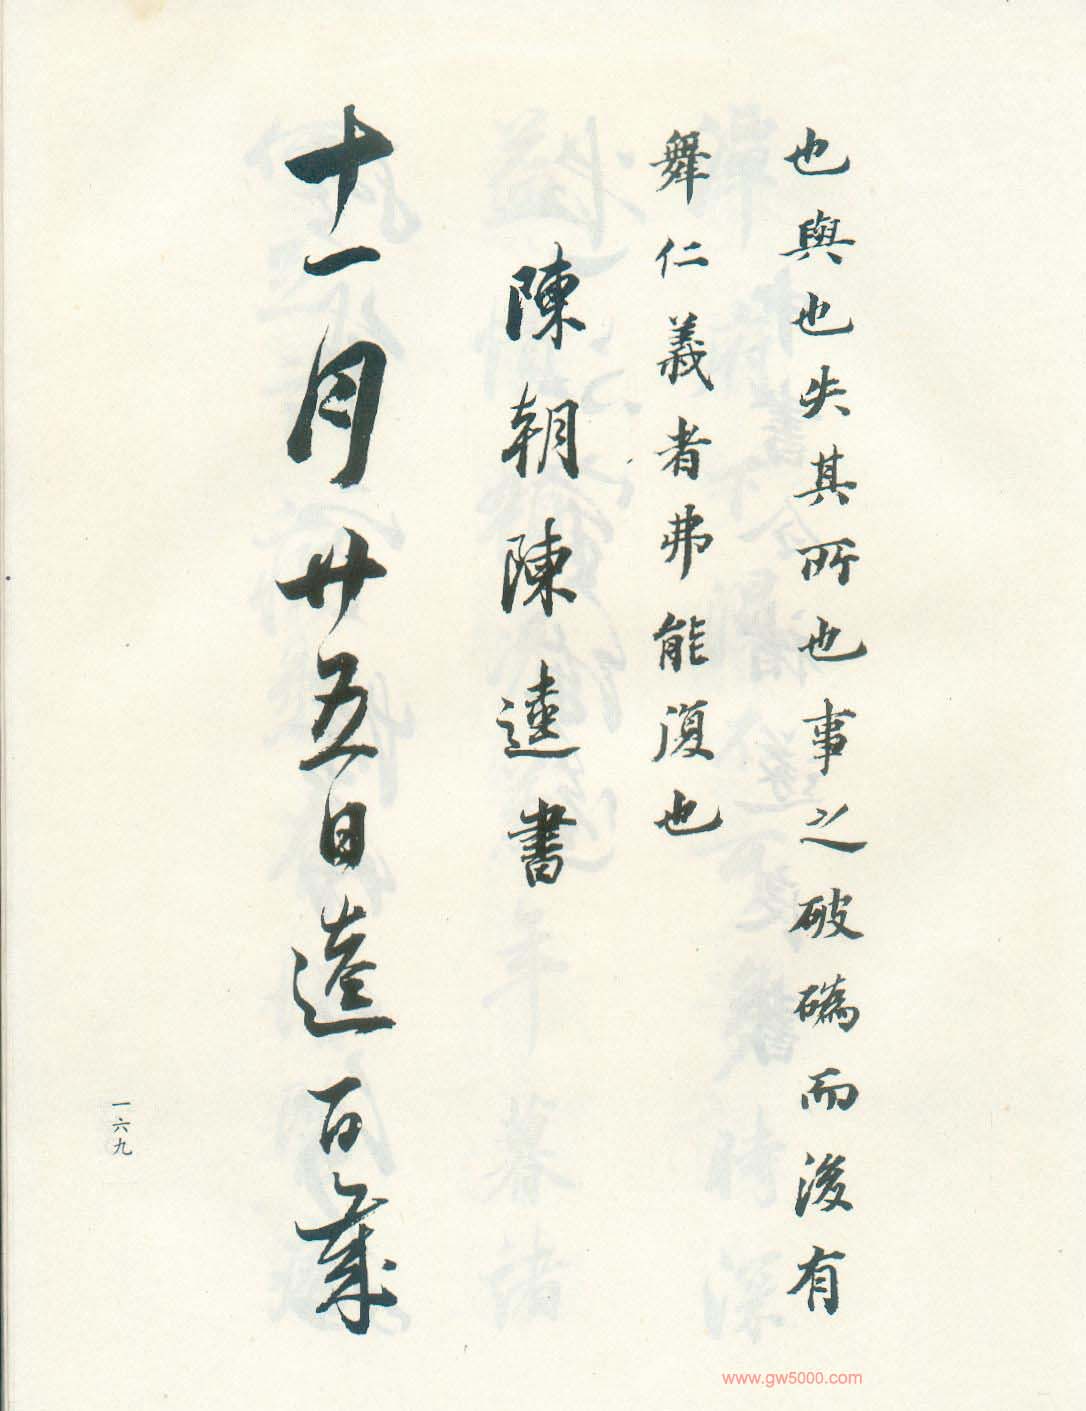 也與也失其所也事之破䃣而後有
舞仁義者弗能復也
陳朝陳逵書
十一月廿五日逵白歲
一六九
www.gw5000.com